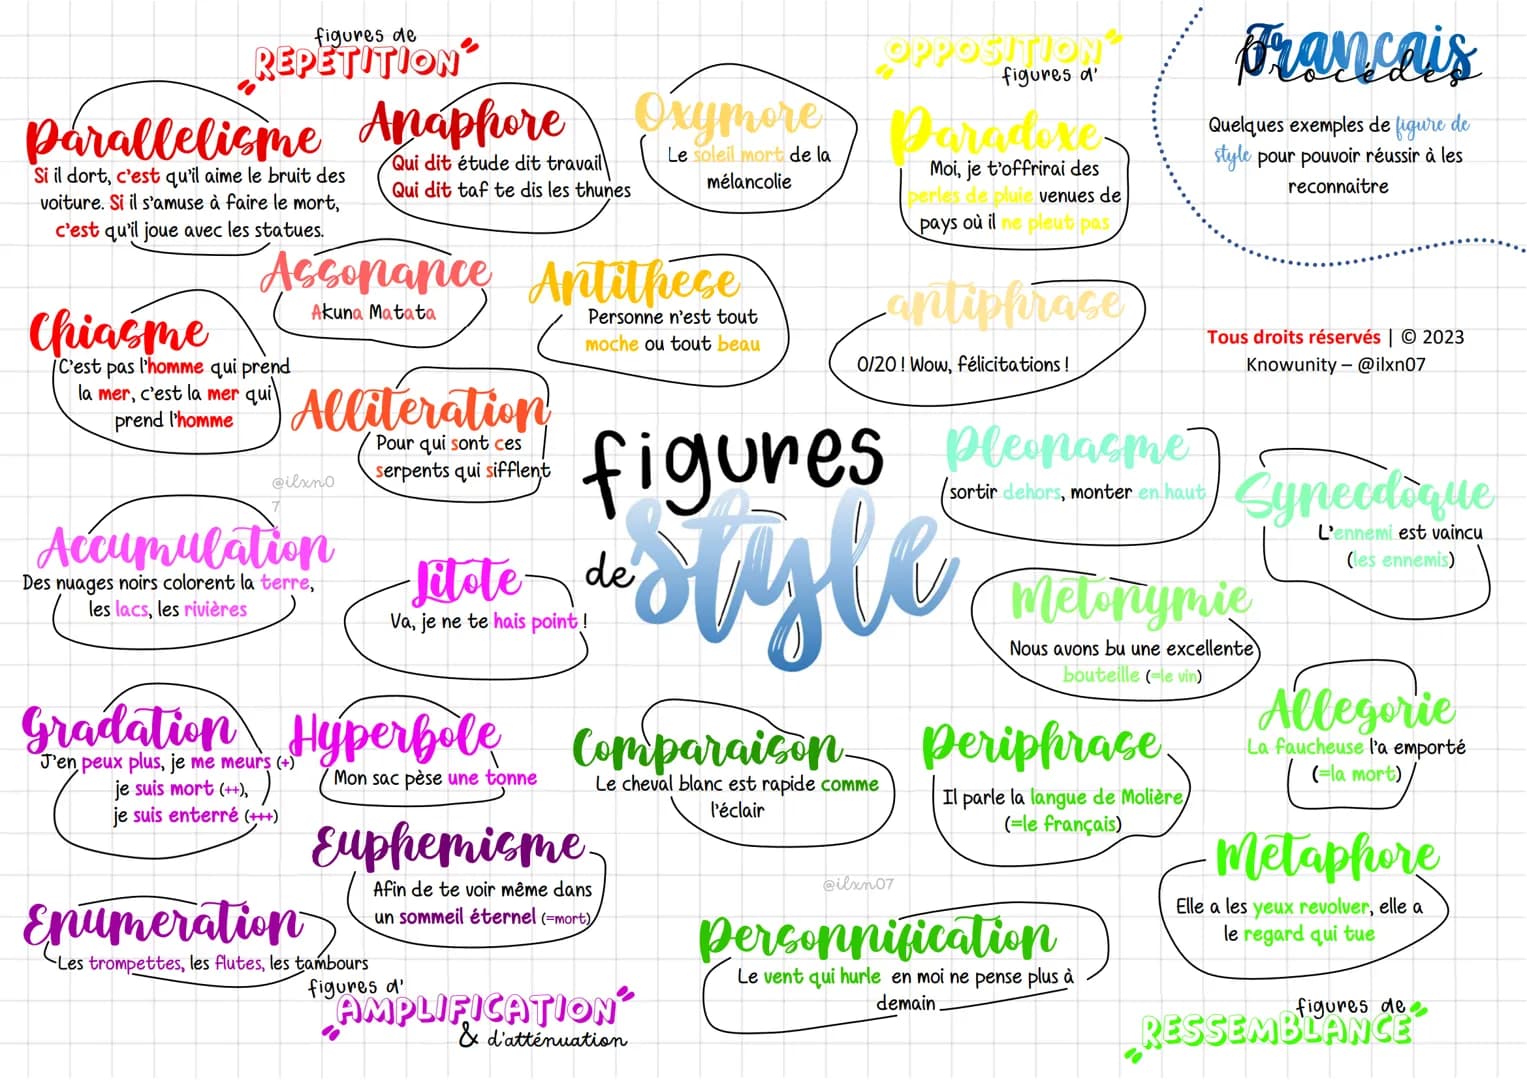 figures de
"REPETITION"
Parallelisme
Si il dort, c'est qu'il aime le bruit des
voiture. Si il s'amuse à faire le mort,
c'est qu'il joue avec les statues.
Anaphore
Qui dit étude dit travail
Qui dit taf te dis les thunes
Assonance
Akuna Matata
Chiasme
C'est pas l'homme qui prend
la mer, c'est la mer qui
prend l'homme
Alliteration
Pour qui sont ces
serpents qui sifflent
@ilxn0
7
"OPPOSITION"
figures d'
Oxymore
Le soleil mort de la
mélancolie
Paradoxe
Moi, je t'offrirai des
perles de pluie venues de
pays où il ne pleut pas
Antithese
Personne n'est tout
moche ou tout beau
antiphrase
0/20 ! Wow, félicitations !
Français
procédés
Quelques exemples de figure de
style pour pouvoir réussir à les
reconnaitre
Tous droits réservés | © 2023
Knowunity – @ilxn07
figures
de style
Accumulation
Des nuages noirs colorent la terre,
les lacs, les rivières
Litote
Va, je ne te hais point !
Gradation
J'en peux plus, je me meurs (+)
je suis mort (++),
je suis enterré (+++)
Hyperbole
Mon sac pèse une tonne
Euphemisme
Afin de te voir même dans
un sommeil éternel (=mort)
Enumeration
Les trompettes, les flutes, les tambours
figures d'
"AMPLIFICATION"
& d'atténuation
Pleonasme
sortir dehors, monter en haut
Synecdoque
L'ennemi est vaincu
(les ennemis)
Métonymie
Nous avons bu une excellente
bouteille (=le vin)
Allegorie
La faucheuse l'a emporté
(=la mort)
Comparaison
Le cheval blanc est rapide comme
l'éclair
Periphrase
Il parle la langue de Molière
(=le français)
Métaphore
Elle a les yeux revolver, elle a
le regard qui tue
@ilxn07
Personnification
Le vent qui hurle en moi ne pense plus à
demain
figures de
"RESSEMBLANCE"